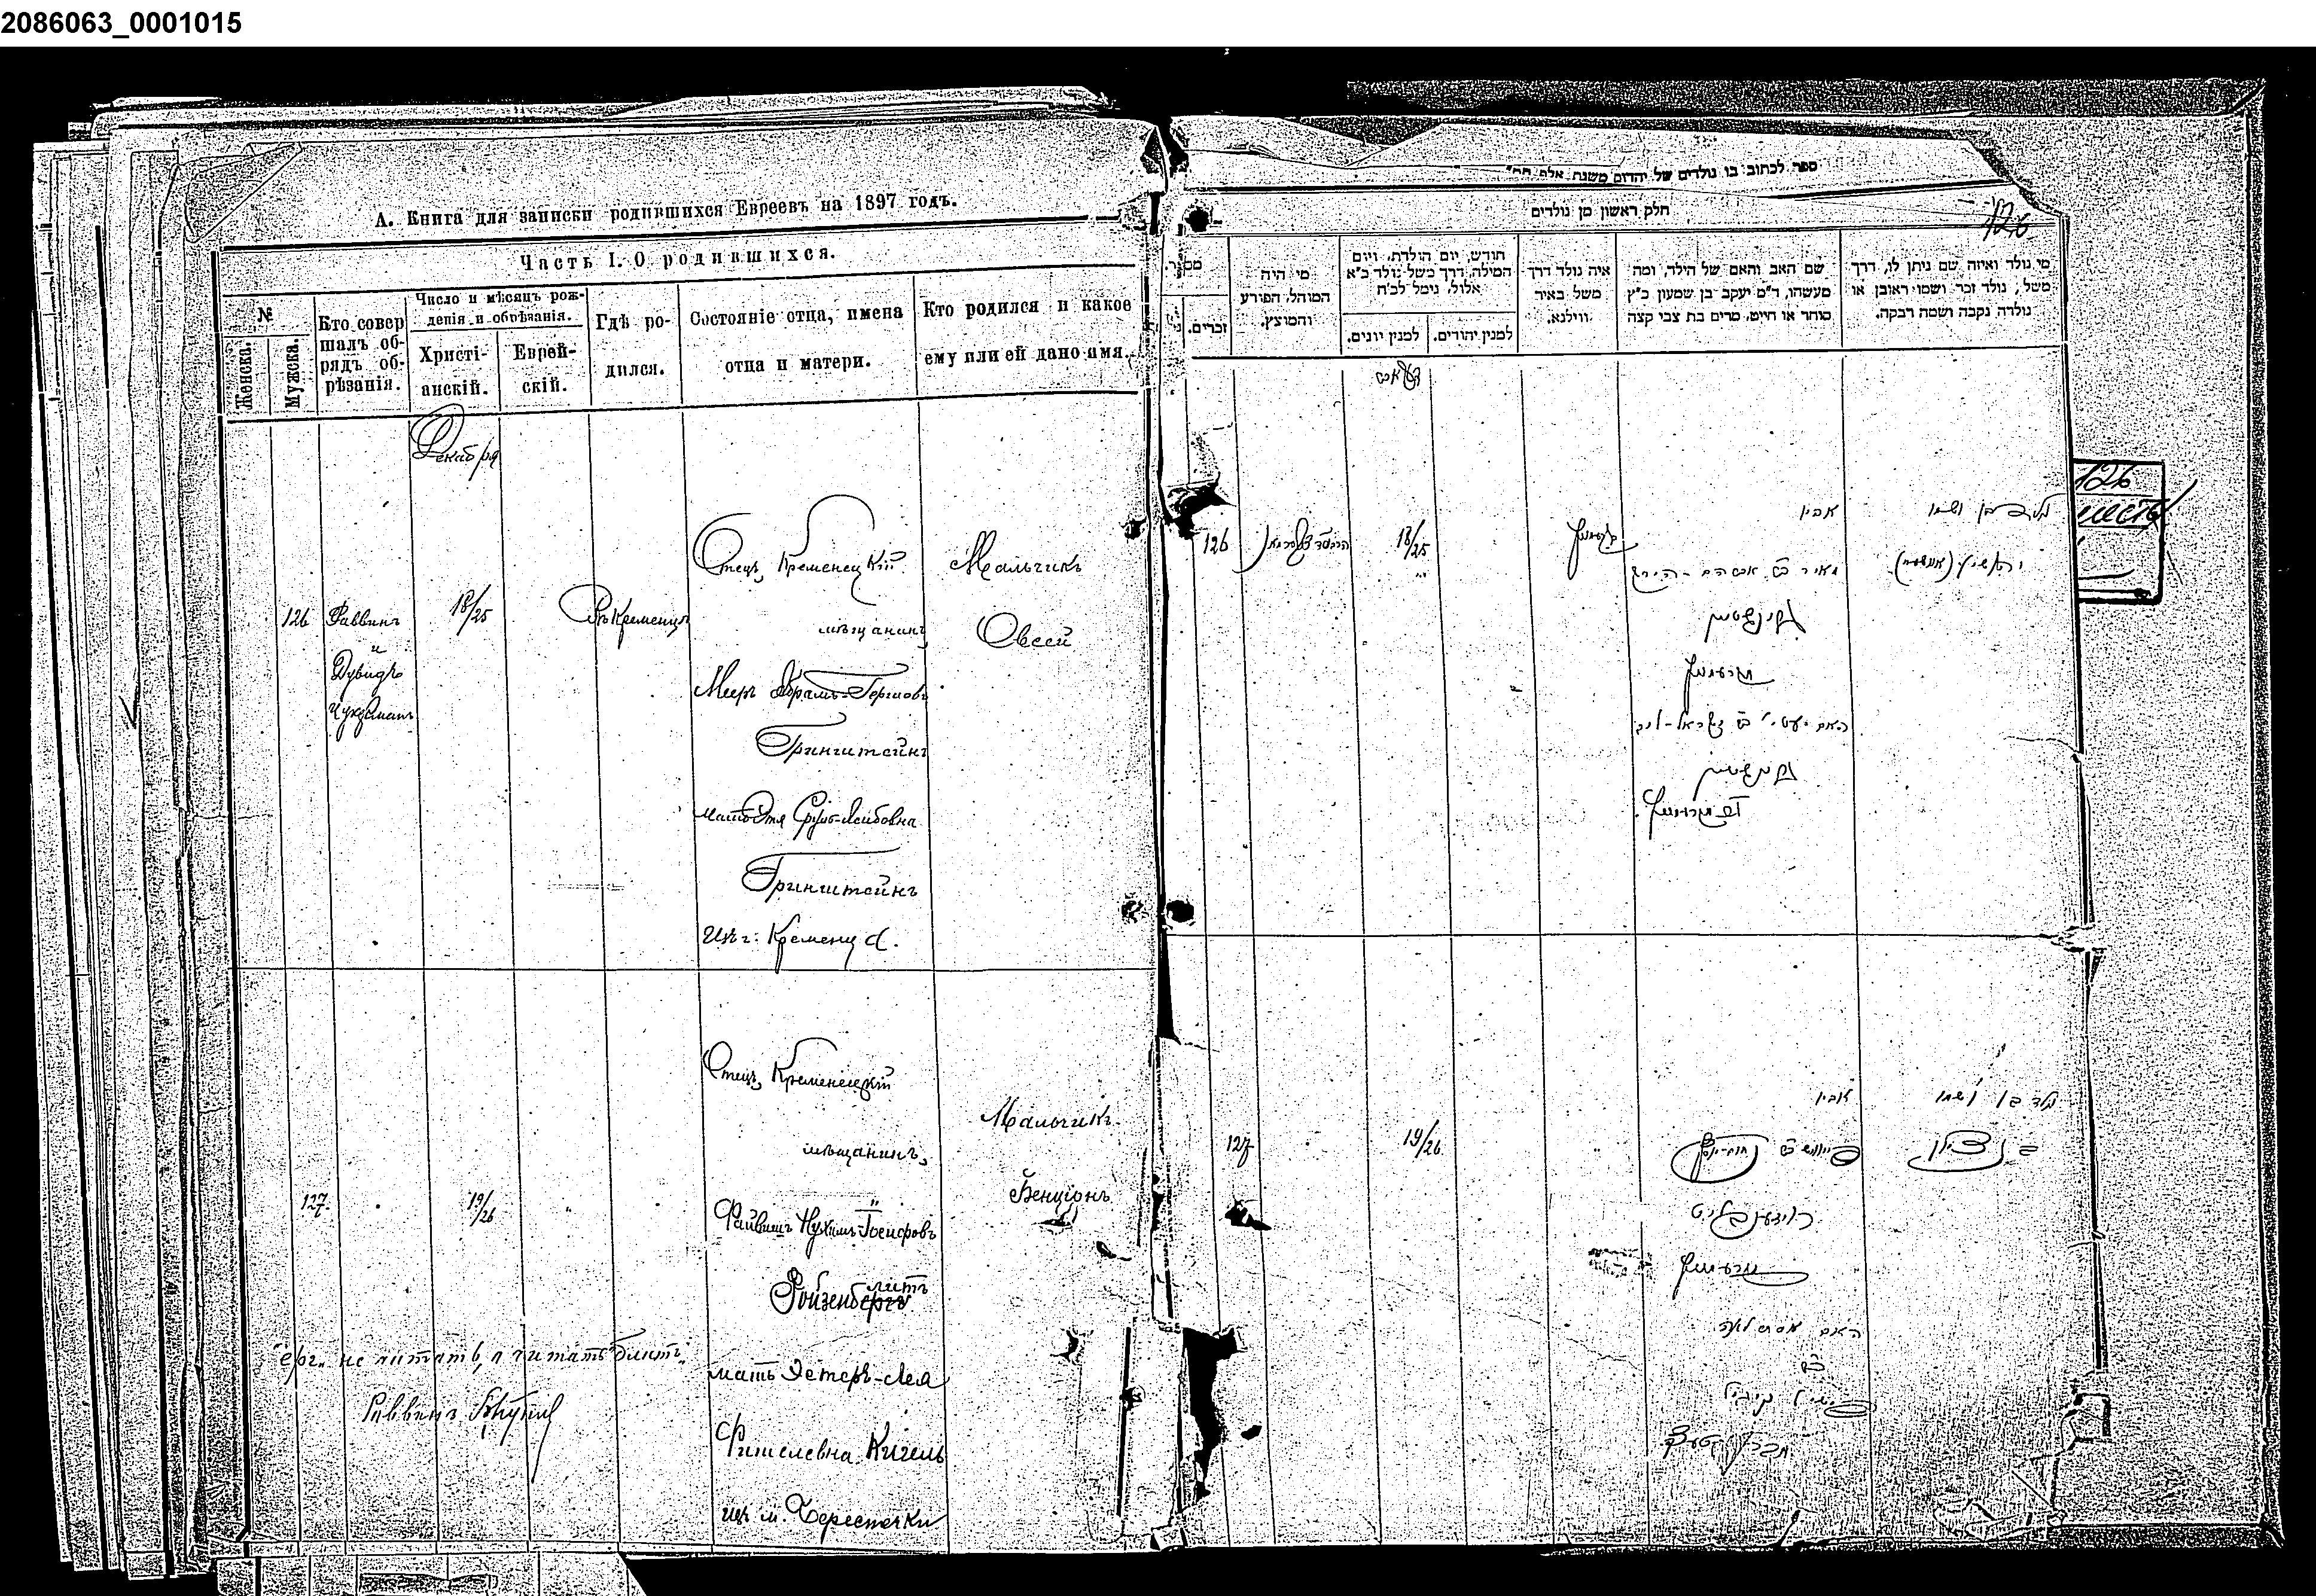 2086063_0001015
А. Книга для записки родившихся Евреевъ на 1897 годъ.
Часть I. О родившихся.
№
Женска.
Мужска.
Кто совер
шалъ об-
рядъ об-
рѣзанія.
Число и мѣсяцъ рож-
денія и обрѣзанія.
Христі-
анскій.
Еврей-
скій.
Гдѣ ро-
дился.
Состояніе отца, имена
отца и матери.
Кто родился и какое
ему или ей дано имя.
Декабря
126
Раввинъ
и
Дувидъ
Цукерманъ
18/25
Въ Кременцѣ
Отецъ, Кременецкій
мѣщанинъ
Мееръ Абрамъ-Гершовъ
Гринштейнъ
мать Этя Сруль-Лейбовна
Гринштейнъ
Изъ г. Кременца.
Мальчикъ
Овсей
127.
19/26
Отецъ, Кременецкій
мѣщанинъ,
Файвишъ Нухимъ-Iосифовъ
литъ
Ройзенбергъ
мать Эстеръ-Лея
Фишелевна Кигель
изъ м. Берестечки
Мальчикъ
Бенціонъ
"ергъ" не читать, а читать "блитъ"
Раввинъ
ספר לכתוב בו נולדים של יהדום משנת אלף
חלק ראשון מן נולדים
126
מספר.
זכרים.
מי היה
המוהל, הפורע
והמוצץ.
חודש, יום הולדת, ויום
המילה, דרך משל נולד כ"א
אלול, נימל לכ"ח
למנין יונים.
למנין יהודים.
איה נולד דרך
משל באיר
ווילנא.
שם האב והאם של הילד, ומה
מעשהו, ד"מ יעקב בן שמעון כ"ץ
סוחר או חייט, מרים בת צבי קצה
מי נולד ואיזה שם ניתן לו, דרך
משל, נולד זכר ושמו ראובן או
נולדה נקבה ושמה רבקה.
126
18/25
קרעמניץ
אביו
מאיר ב"ר אברהם-הירש
גרינשטיין
קרעמניץ
גרינשטיין
נולד בן ושמו
126
127
19/26
אביו
רויזענבליט
קרעמניץ
האם אסתר לאה
נולד בן ושמו
בן ציון